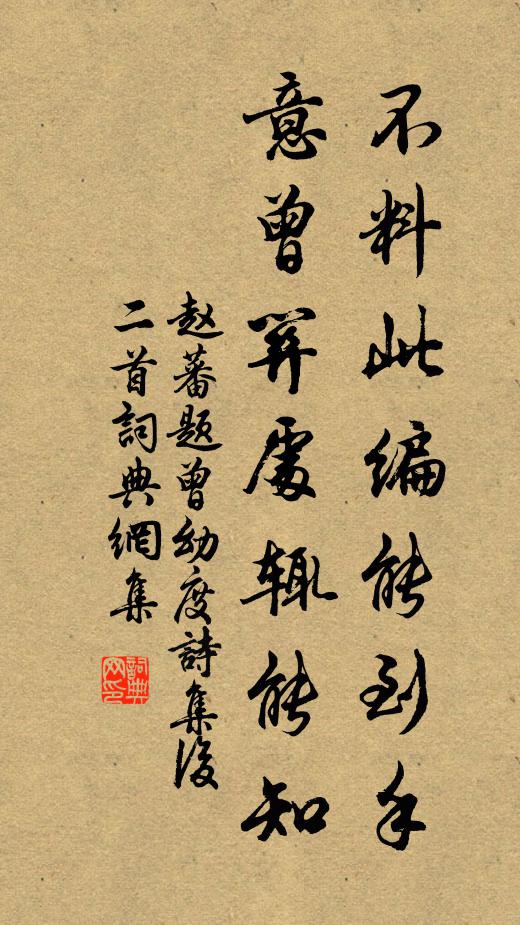 不料此编能到手
意曾算處辄能知
赵蕃题曾幼度詩集後
二首詞典網集
詞典網印